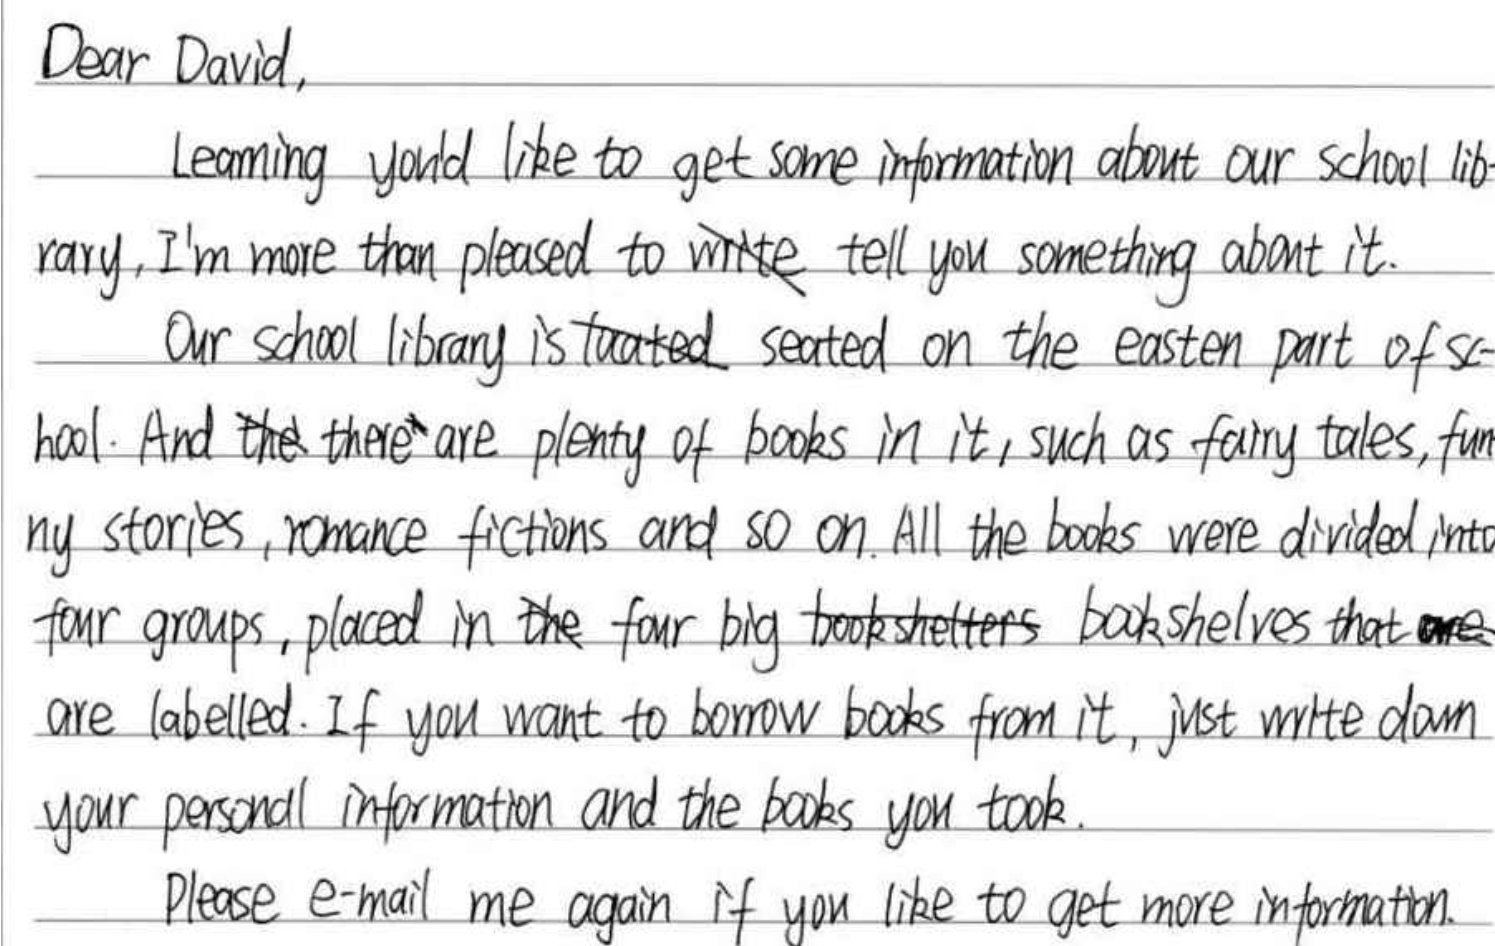 Dear David,
Learning you'd like to get some information about our school lib-
rary, I'm more than pleased to write tell you something about it.
Our school library is seated on the easten part of sc-
hool. And the there are plenty of books in it, such as fairy tales, fun
ny stories, romance fictions and so on. All the books were divided into
four groups, placed in the four big bookshelters bookshelves that are
are labelled. If you want to borrow books from it, just write down
your personal information and the books you took.
Please e-mail me again if you like to get more information.